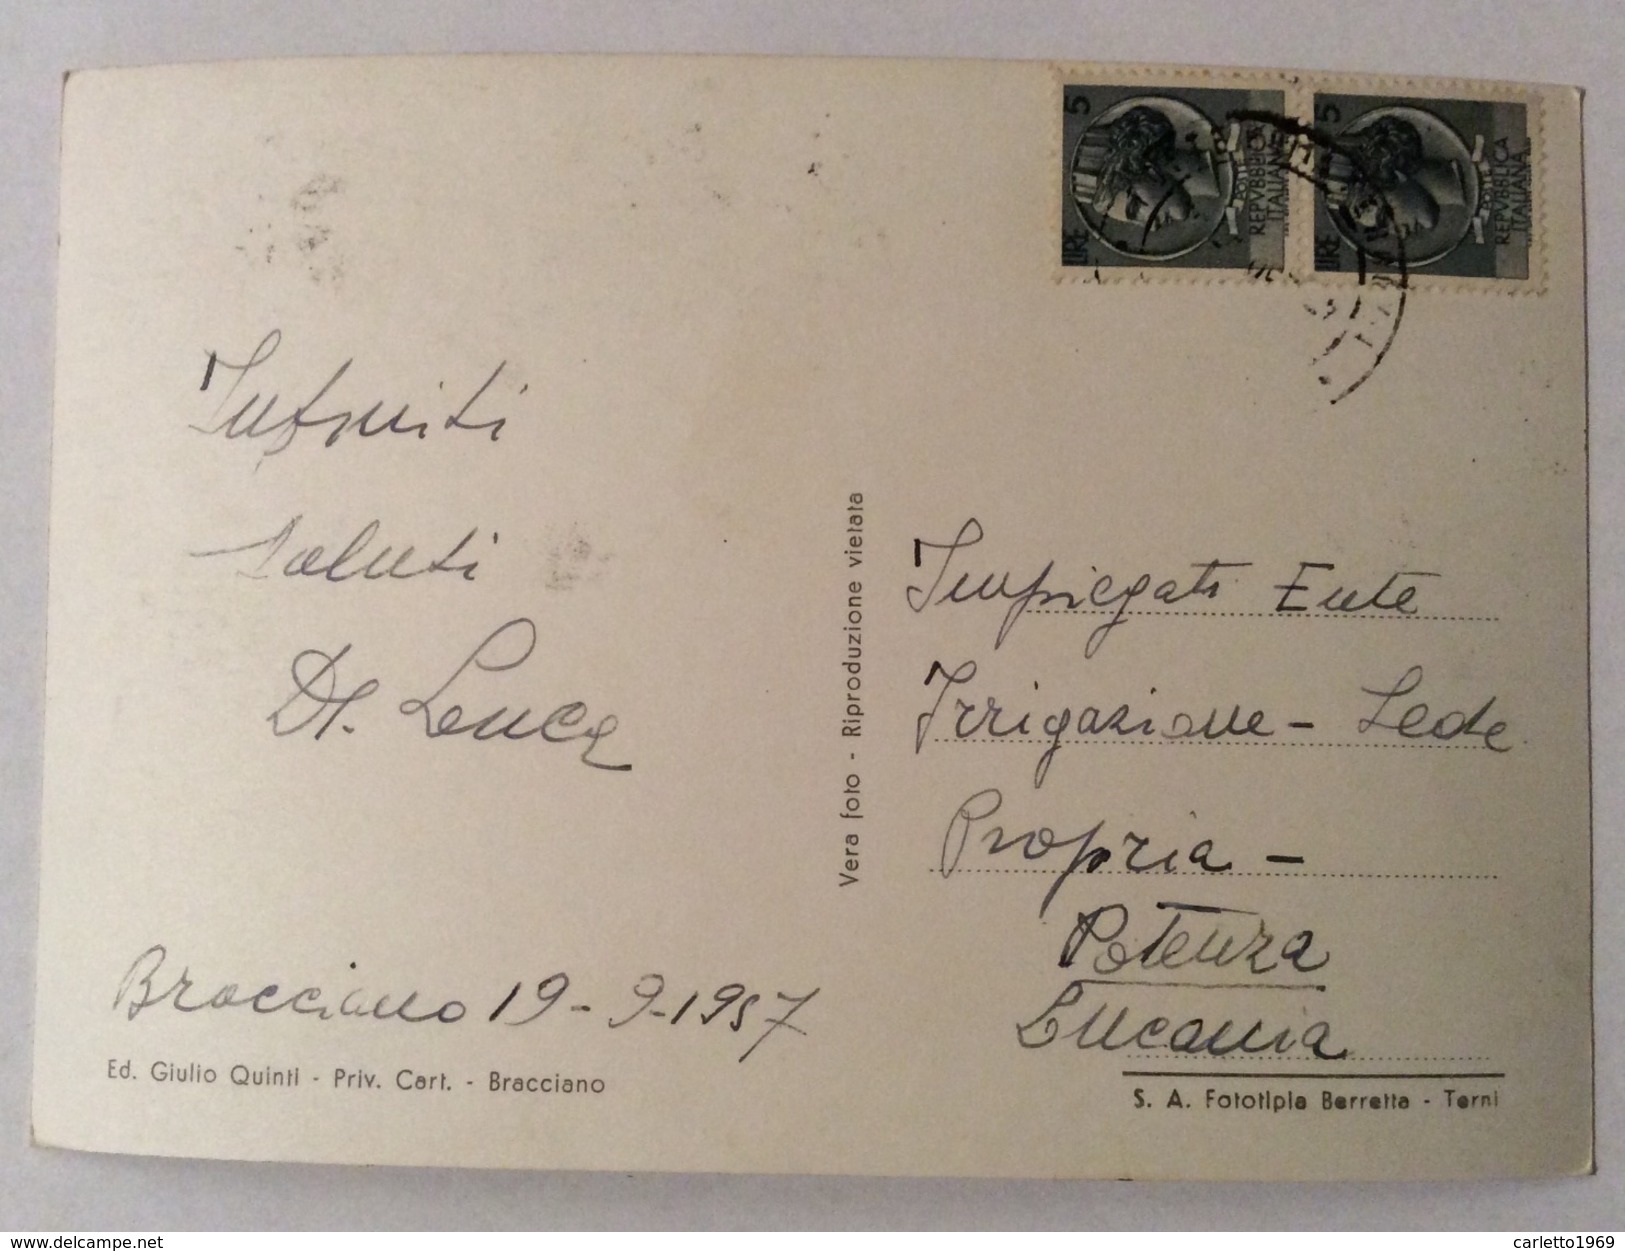 5
LIRE
POSTE
REPVBBLICA
ITALIANA
5
LIRE
POSTE
REPVBBLICA
ITALIANA
Infiniti
saluti
Impiegati Ente
Irrigazione - Sede
Propria -
Potenza
Lucania
Bracciano 19-9-1957
Vera foto - Riproduzione vietata
Ed. Giulio Quinti - Priv. Cart. - Bracciano
S. A. Fototipia Berretta - Terni
www.delcampe.net
carletto1969